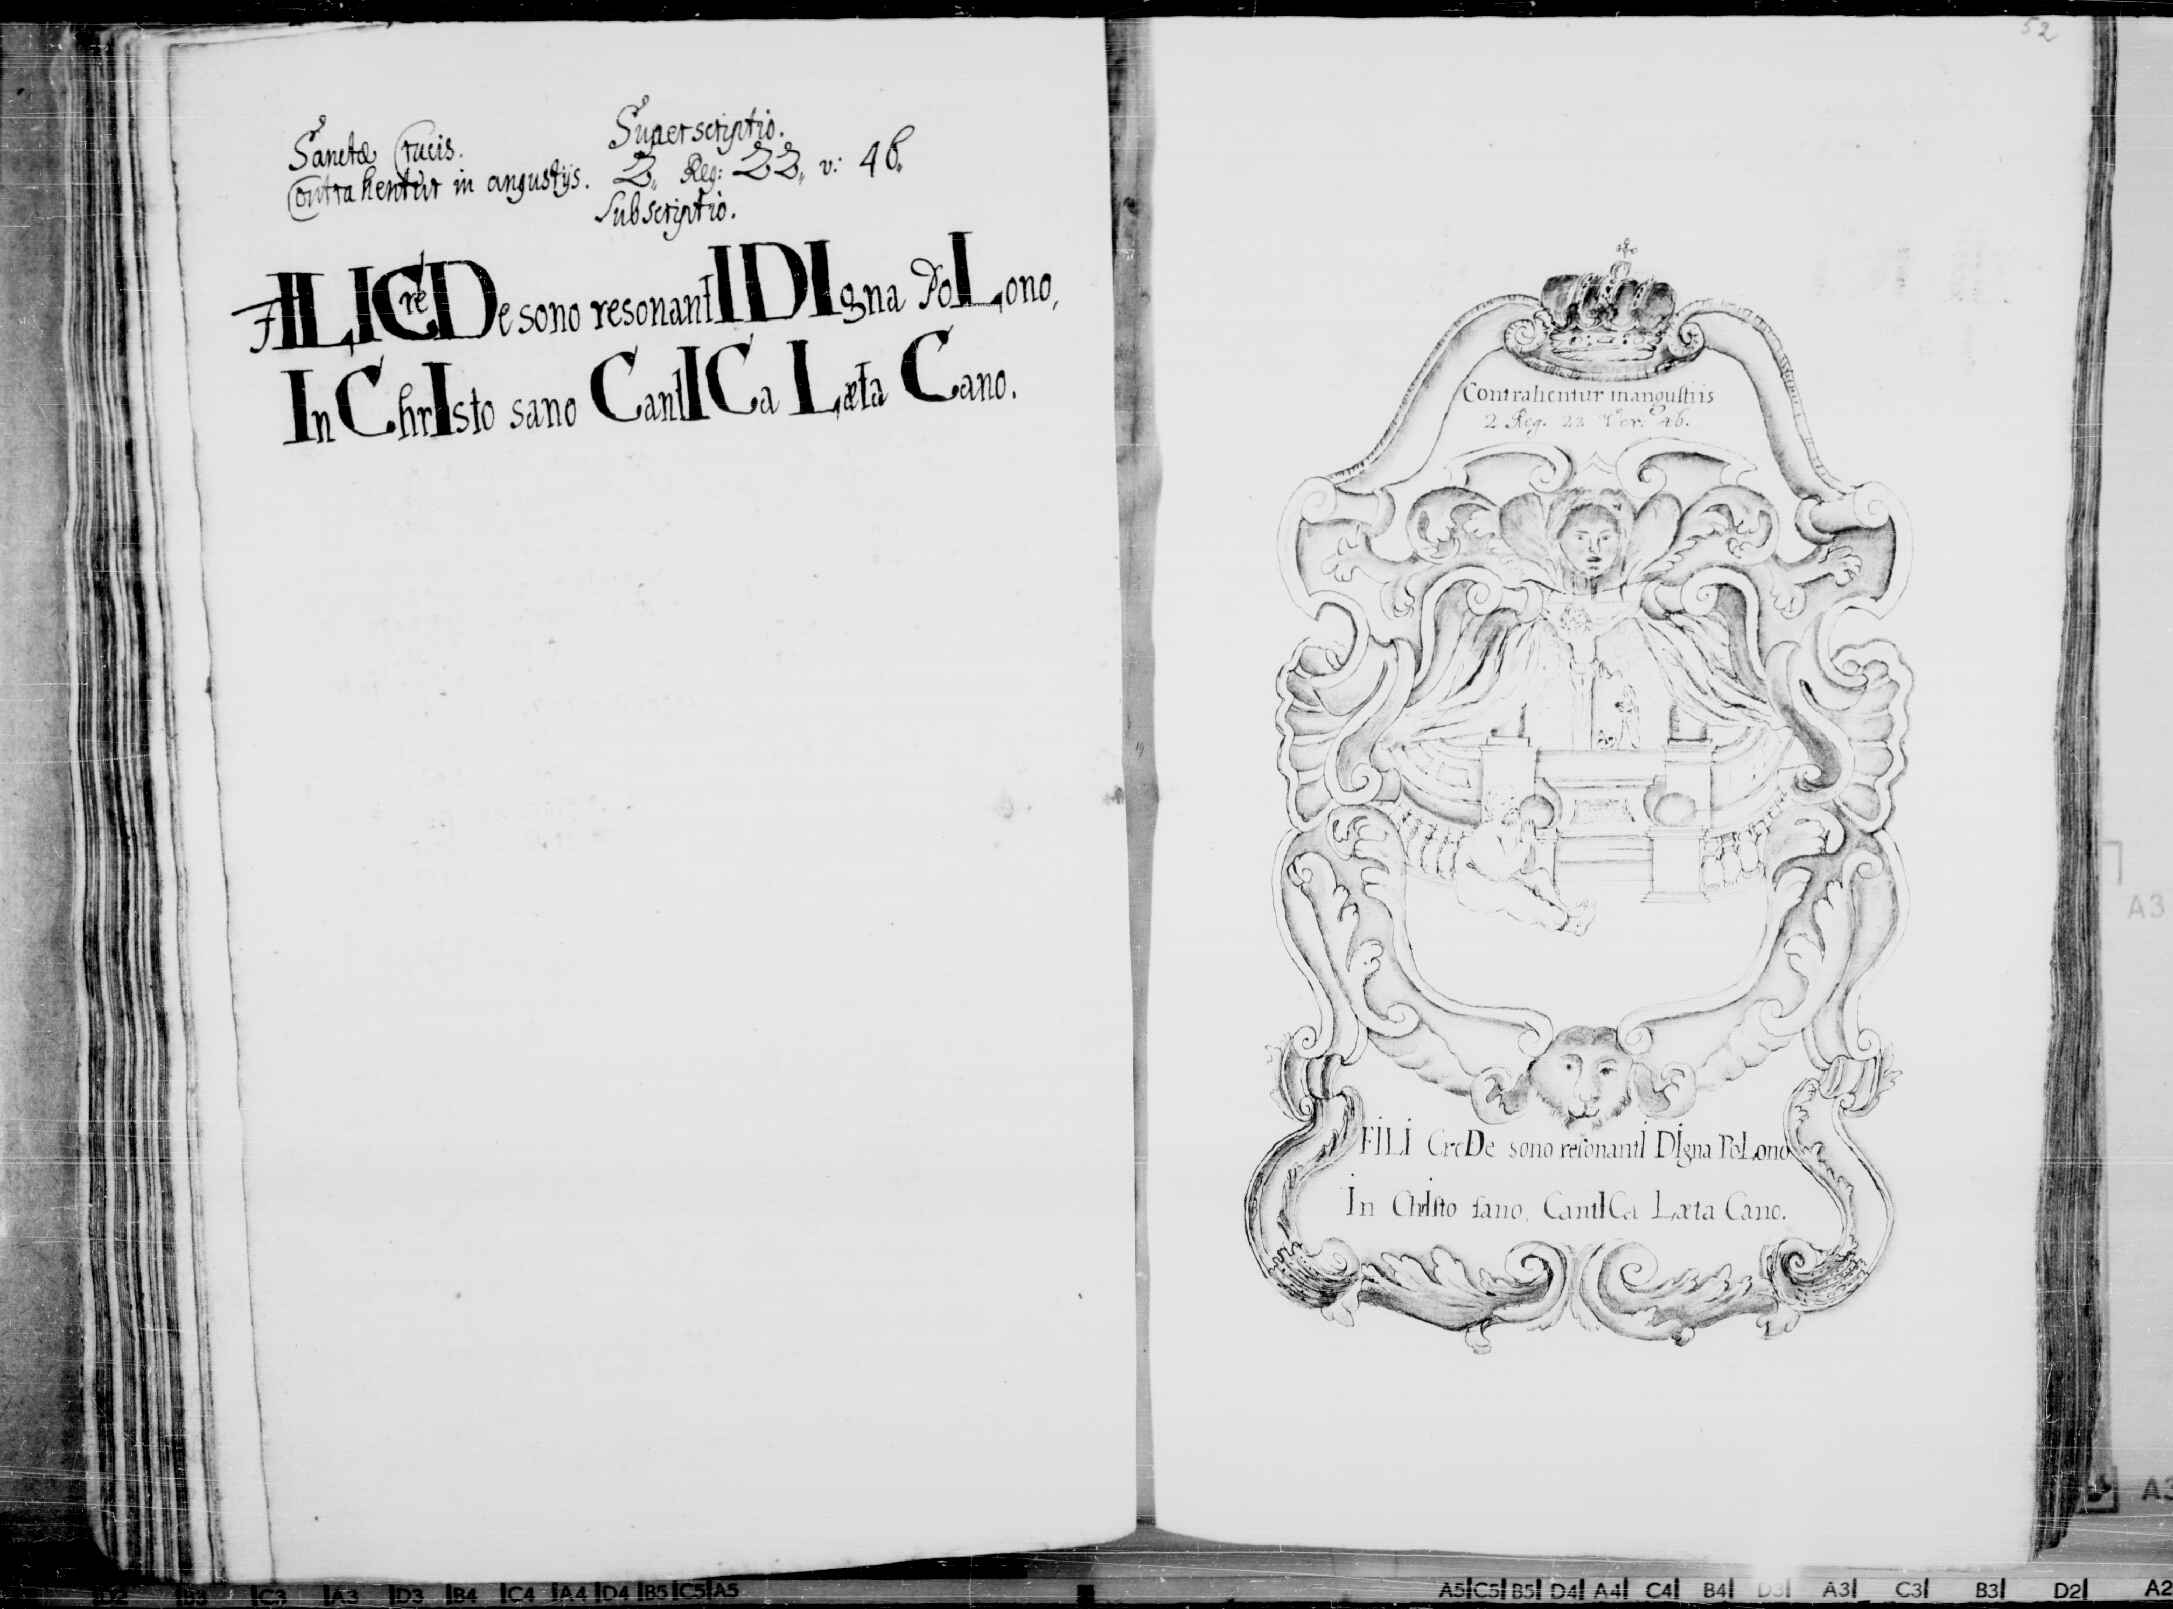 Sanctæ Crucis.
Superscriptio.
Contrahentur in angustijs. 2. Reg: 22, v: 46.
Subscriptio.
FILI CreDe sono resonantI DIgna PoLono,
In ChrIsto sano CantICa Læta Cano.
52
Contrahentur in angustiis
2 Reg. 22 Ver. 46.
FILI CreDe sono resonantI DIgna PoLono
In ChrIsto sano, CantICa Læta Cano.
A3
A3
D2 B3 C3 A3 D3 B4 C4 A4 D4 B5 C5 A5
A5 C5 B5 D4 A4 C4 B4 D3 A3 C3 B3 D2 A2